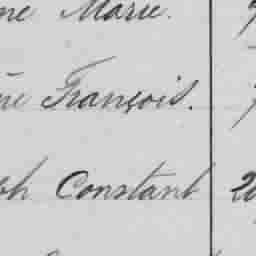 ne Marie.
ne François.
ph Constant 20